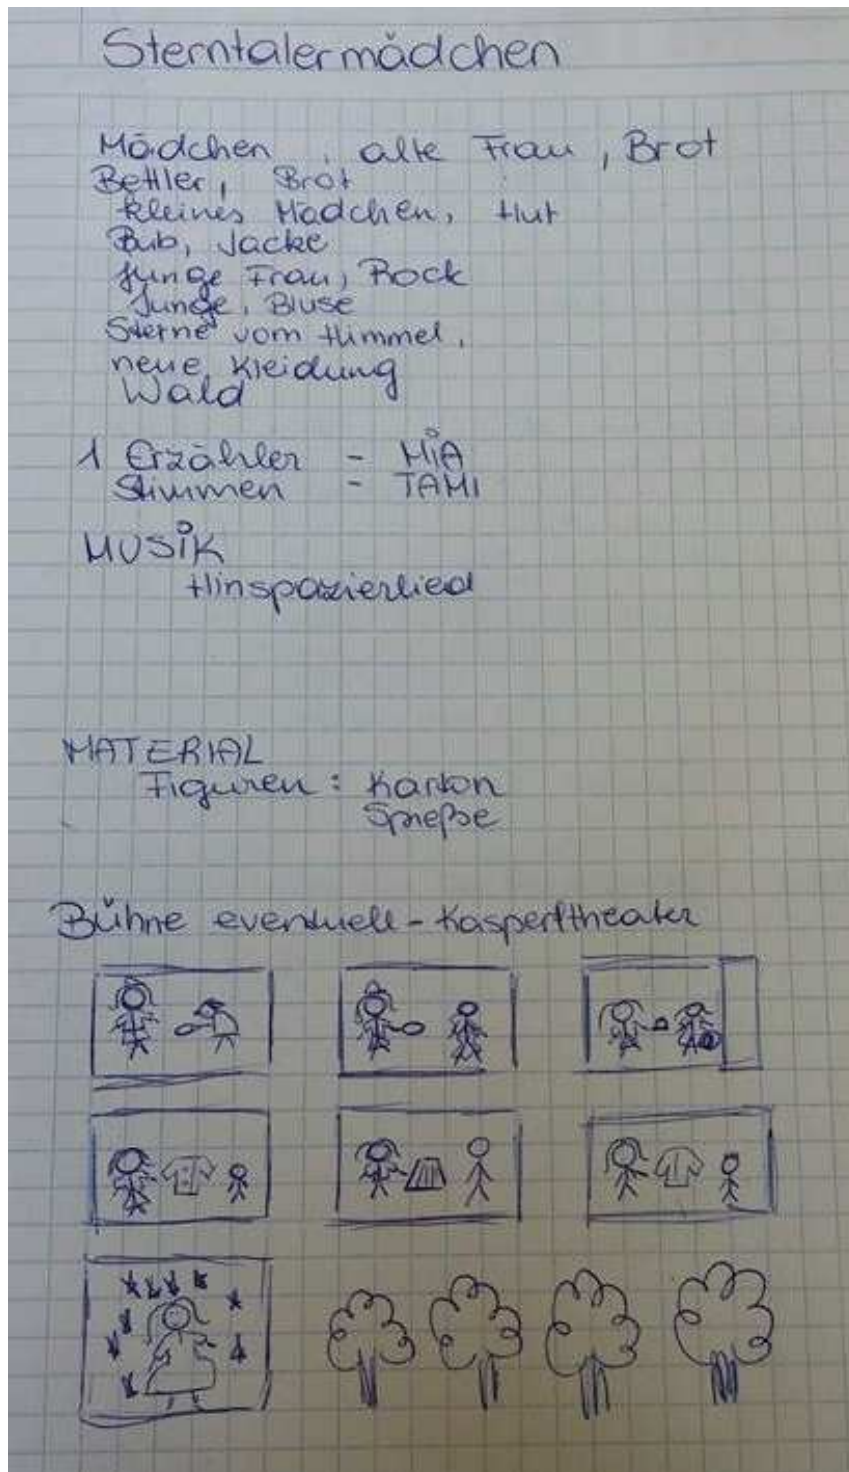 Sterntalermädchen
Mädchen, alte Frau, Brot
Bettler, Brot
kleines Mädchen, Hut
Bub, Jacke
junge Frau, Rock
Junge, Bluse
Sterne vom Himmel,
neue Kleidung
Wald
1 Erzähler - MIA
Stimmen - TAMI
MUSIK
Hinspazierlied
MATERIAL
Figuren: Karton
Spieße
Bühne eventuell - Kasperltheater